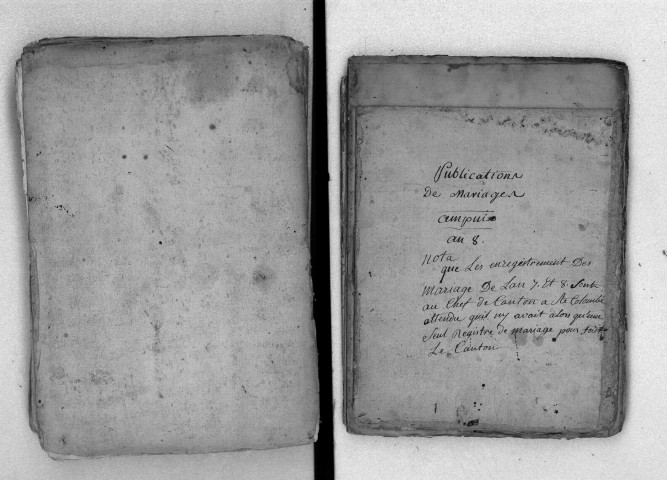 Publications
de mariages
ampuis
an 8.
nota
que Les enregestrement Des
mariage De Lan 7. Et 8 Sont
au Chef de Canton a Ste Colombe
attendu quil ny avait alors qu'un
Seul Registre de mariage pour tout
Le Canton